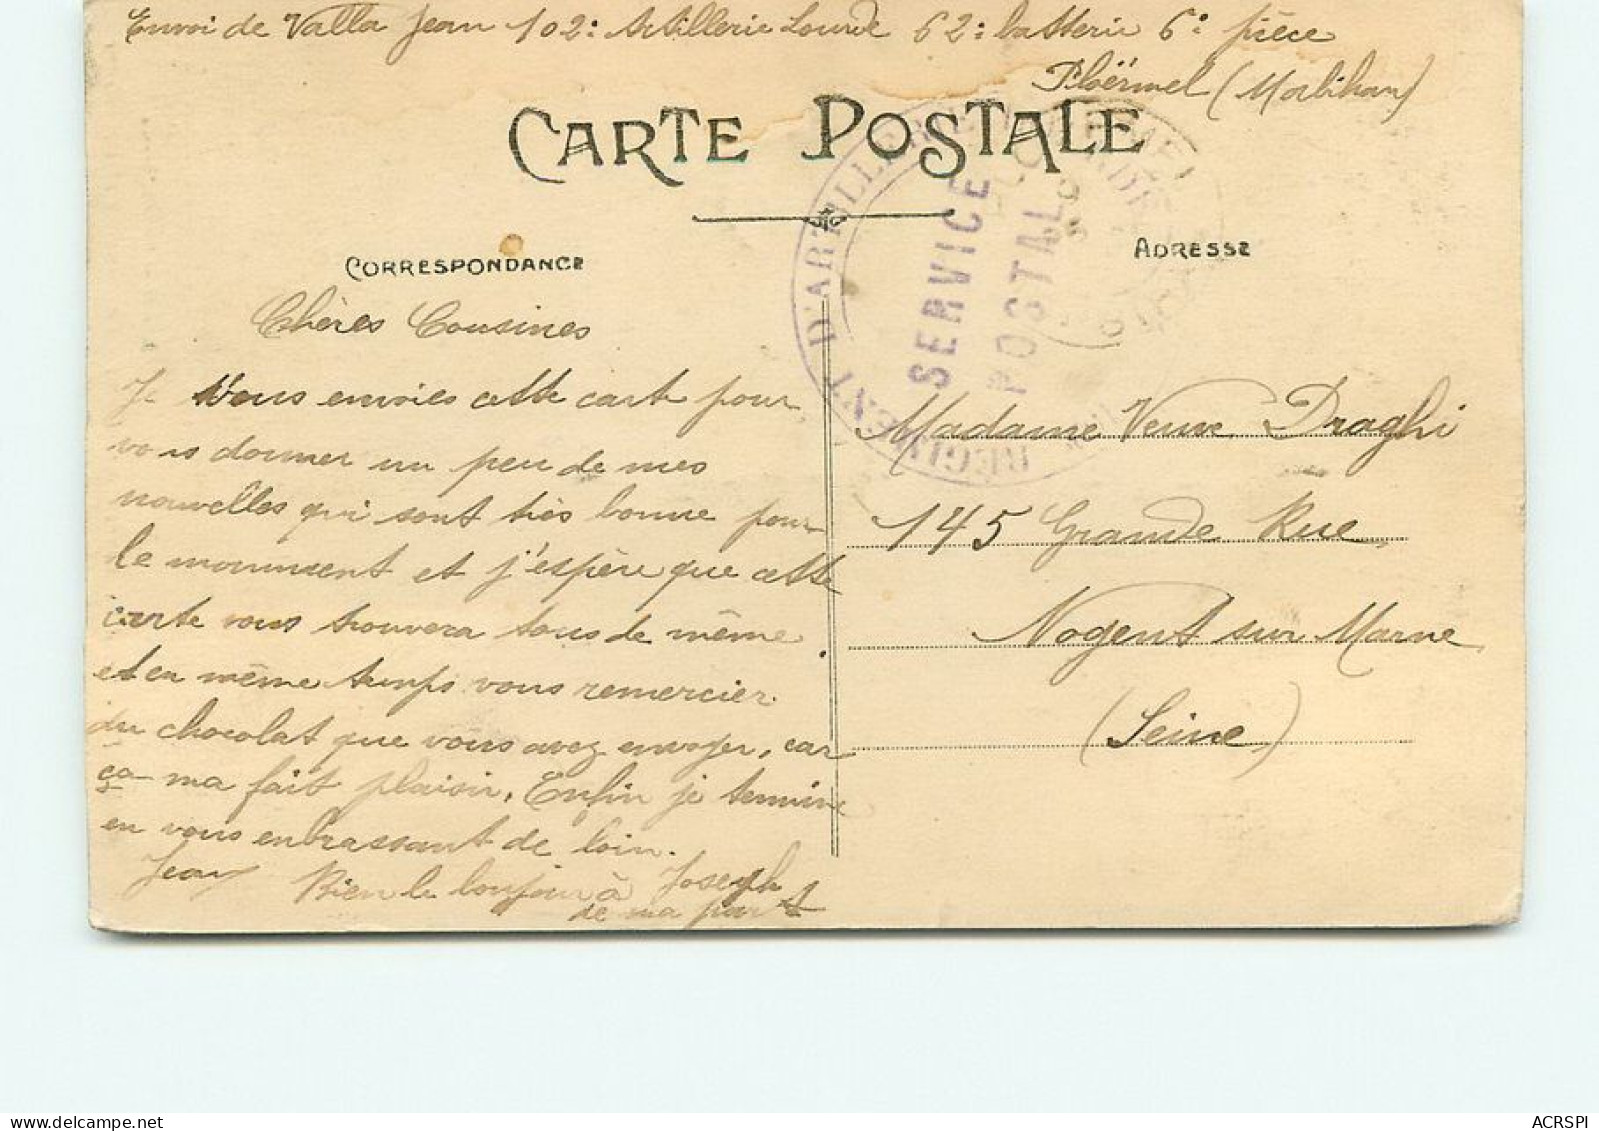 Envoi de Valla Jean 102e Artillerie Lourde 62e batterie 6e pièce
Ploërmel (Morbihan)
CARTE POSTALE
CORRESPONDANCE
ADRESSE
RÉGIMENT D'ARTILLERIE
SERVICE
POSTAL
Chères Cousines
Je Vous envoies cette carte pour
vous donner un peu de mes
nouvelles qui sont très bonne pour
le monument et j'espère que cette
carte vous trouvera tous de même
et en même temps vous remercier
du chocolat que vous avez envoyer, car
ça ma fait plaisir. Enfin je termine
en vous enbrassant de loin.
Jean
Bien le bonjour à Joseph
de ma part
Madame Veuve Draghi
145 Grande Rue
Nogent sur Marne
(Seine)
ACRSPI